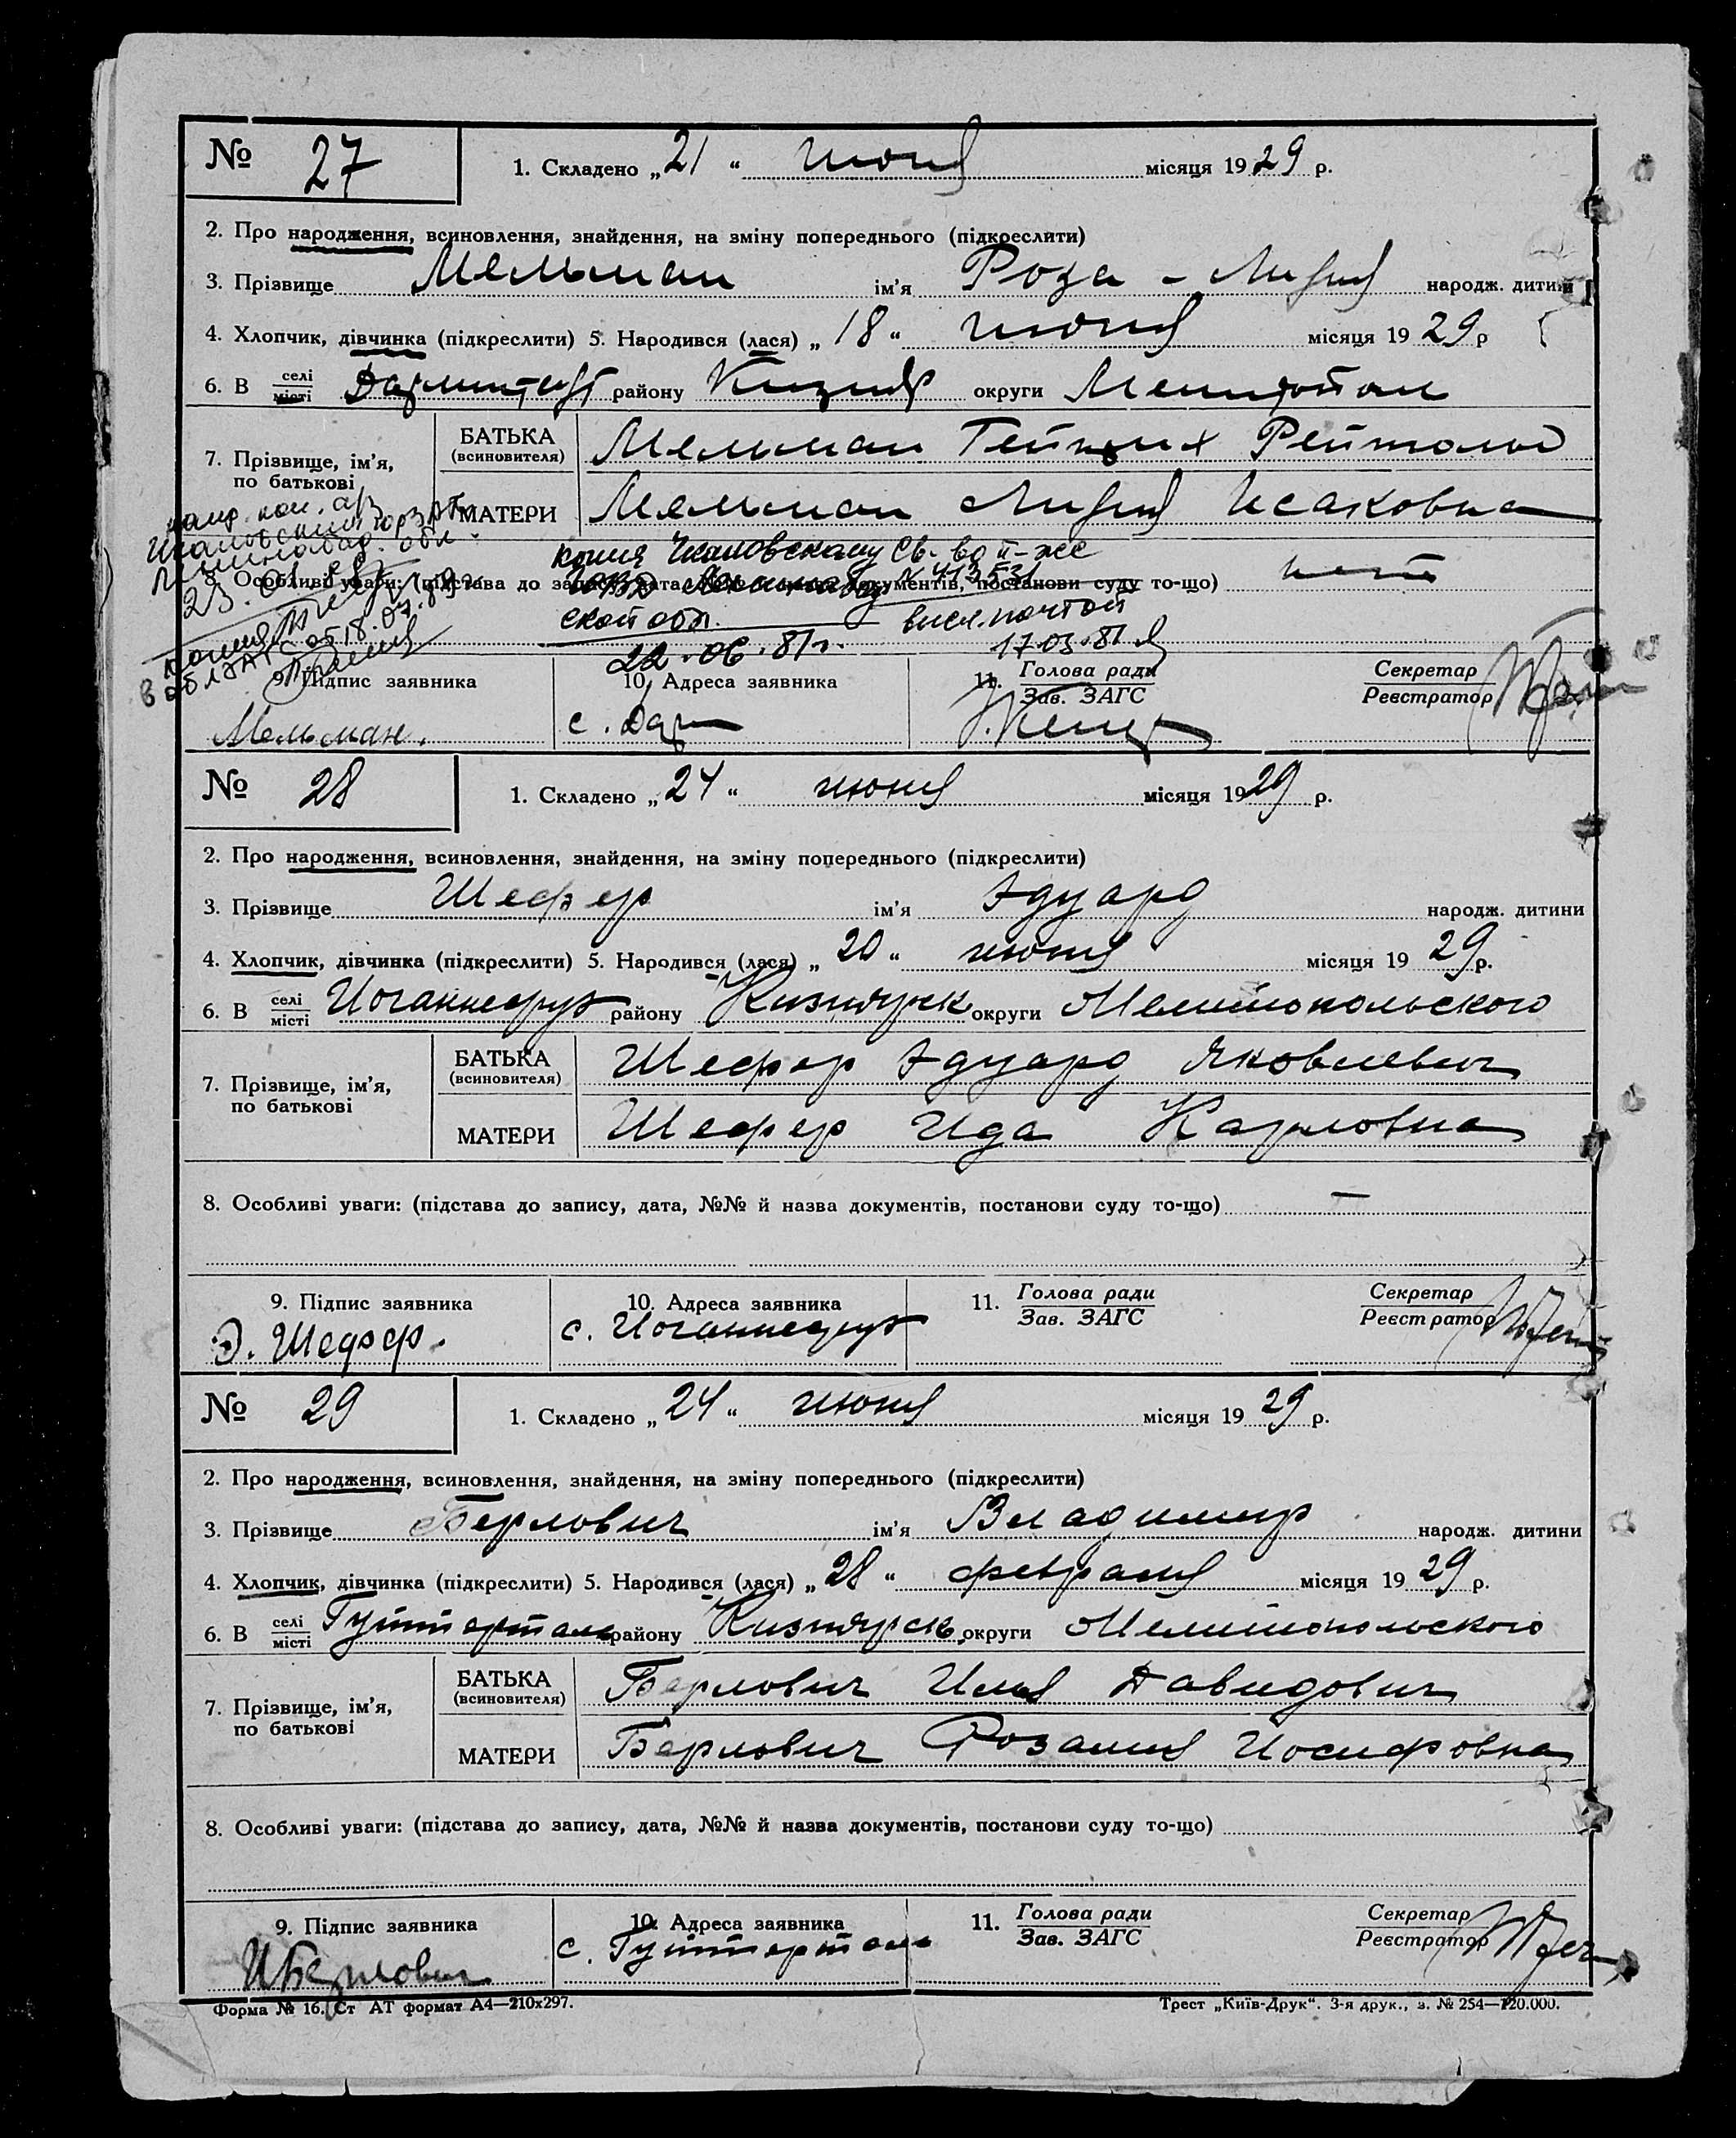 № 27 1. Складено „21“ июня місяця 1929 р.
2. Про народження, всиновлення, знайдення, на зміну попереднього (підкреслити)
3. Прізвище Мельман ім'я Роза - Лидия народж. дитини
4. Хлопчик, дівчинка (підкреслити) 5. Народився (лася) „18“ июня місяця 1929 р
6. В селі місті Дармштадт району округи
7. Прізвище, ім'я, по батькові БАТЬКА (всиновителя) Мельман Гейнрих Рейнгольд
МАТЕРИ Мельман Лидия Исаковна
копия Чкаловскому Св-во II-ЖС
8. Особливі уваги: (підстава до запису, дата, №№ й назва документів, постанови суду то-що) нет
ской обл. высл. почтой
22.06.81г. 17.03.81
9. Підпис заявника 10. Адреса заявника 11. Голова ради Зав. ЗАГС Секретар Реєстратор
Мельман. с. Дарм
№ 28 1. Складено „24“ июня місяця 1929 р.
2. Про народження, всиновлення, знайдення, на зміну попереднього (підкреслити)
3. Прізвище Шефер ім'я Эдуард народж. дитини
4. Хлопчик, дівчинка (підкреслити) 5. Народився (лася) „20“ июня місяця 1929 р.
6. В селі місті Иоганнесруэ району Кизиярск округи Мелитопольского
7. Прізвище, ім'я, по батькові БАТЬКА (всиновителя) Шефер Эдуард Яковлевич
МАТЕРИ Шефер Ида Карловна
8. Особливі уваги: (підстава до запису, дата, №№ й назва документів, постанови суду то-що) —
9. Підпис заявника 10. Адреса заявника 11. Голова ради Зав. ЗАГС Секретар Реєстратор
Э. Шефер. с. Иоганнесруэ
№ 29 1. Складено „24“ июня місяця 1929 р.
2. Про народження, всиновлення, знайдення, на зміну попереднього (підкреслити)
3. Прізвище Берлович ім'я Владимир народж. дитини
4. Хлопчик, дівчинка (підкреслити) 5. Народився (лася) „28“ февраля місяця 1929 р.
6. В селі місті Гуттерталь району Кизиярск. округи Мелитопольского
7. Прізвище, ім'я, по батькові БАТЬКА (всиновителя) Берлович Илья Давидович
МАТЕРИ Берлович Розалия Иосифовна
8. Особливі уваги: (підстава до запису, дата, №№ й назва документів, постанови суду то-що)
9. Підпис заявника 10. Адреса заявника 11. Голова ради Зав. ЗАГС Секретар Реєстратор
И Берлович с. Гуттерталь
Форма № 16. Ст АТ формат А4—210х297. Трест „Київ-Друк“. 3-я друк., з. № 254—120.000.